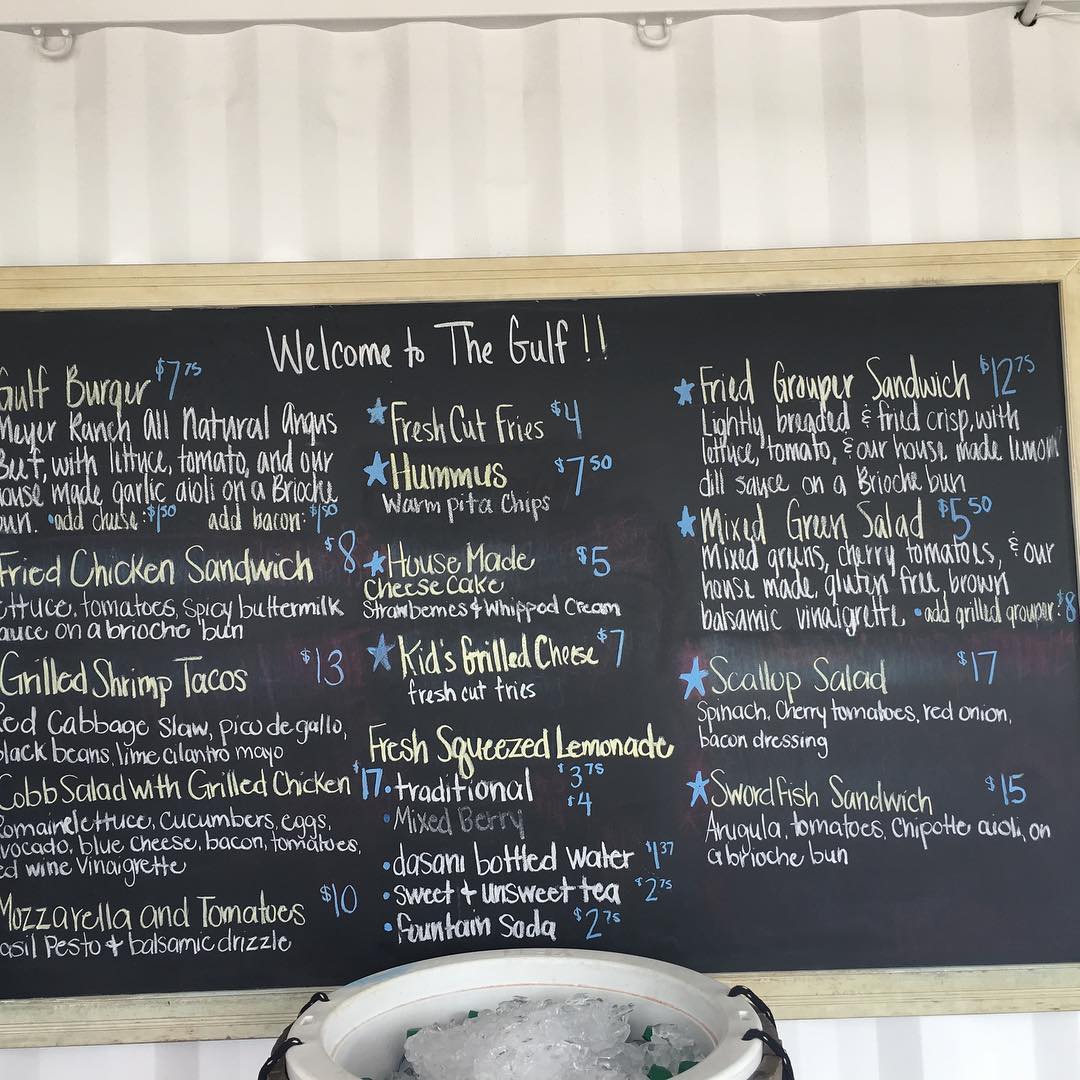 Welcome to The Gulf !!
Gulf Burger $7 75
Meyer Ranch All Natural Angus
Beef, with lettuce, tomato, and our
house made garlic aioli on a Brioche
bun. • add cheese: $1 50 add bacon: $1 50
Fried Chicken Sandwich $8
lettuce, tomatoes, spicy buttermilk
sauce on a brioche bun
Grilled Shrimp Tacos $13
Red Cabbage Slaw, pico de gallo,
black beans, lime cilantro mayo
Cobb Salad with Grilled Chicken $17
Romaine lettuce, cucumbers, eggs,
avocado, blue cheese, bacon, tomatoes,
red wine vinaigrette
Mozzarella and Tomatoes $10
basil Pesto + balsamic drizzle
★ Fresh Cut Fries $4
★ Hummus $7 50
Warm pita Chips
★ House Made $5
Cheese Cake
Strawberries & Whipped Cream
★ Kid's Grilled Cheese $7
fresh cut fries
Fresh Squeezed Lemonade
• traditional $3 75
• Mixed Berry $4
• dasani bottled water $1 37
• sweet + unsweet tea $2 75
• fountain Soda $2 75
★ Fried Grouper Sandwich $12 75
Lightly breaded & fried crisp, with
lettuce, tomato, & our house made lemon
dill sauce on a Brioche bun
★ Mixed Green Salad $5 50
Mixed greens, cherry tomatoes, & our
house made, gluten free, brown
balsamic vinaigrette • add grilled grouper: $8
★ Scallop Salad $17
Spinach, Cherry tomatoes, red onion,
bacon dressing
★ Swordfish Sandwich $15
Arugula, tomatoes, Chipotle aioli, on
a brioche bun